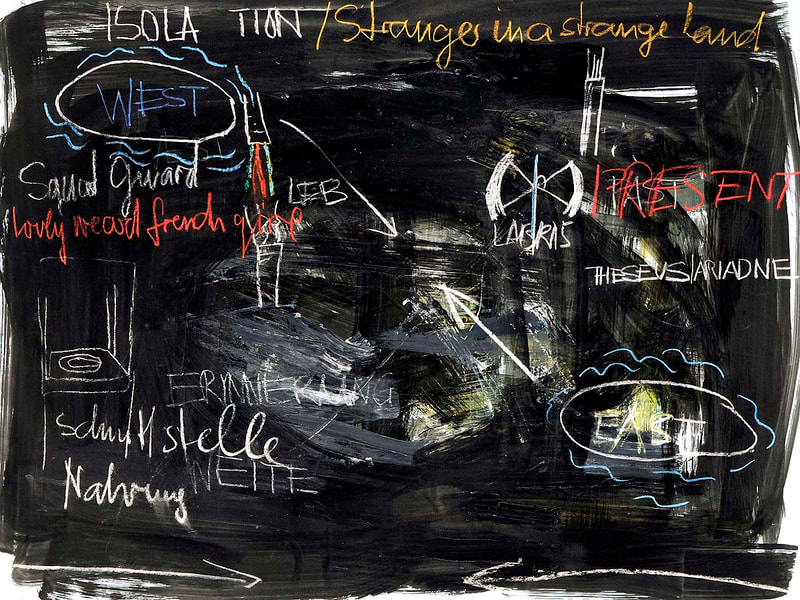 ISOLA TION / Stranger in a strange Land
WEST
Squid Guard
lovely weard french girl
LEB
LABRIS
PRESENT
THESEUS/ARIADNE
ERINNERUNG
EAST
Schnittstelle
WEITE
Nahrung